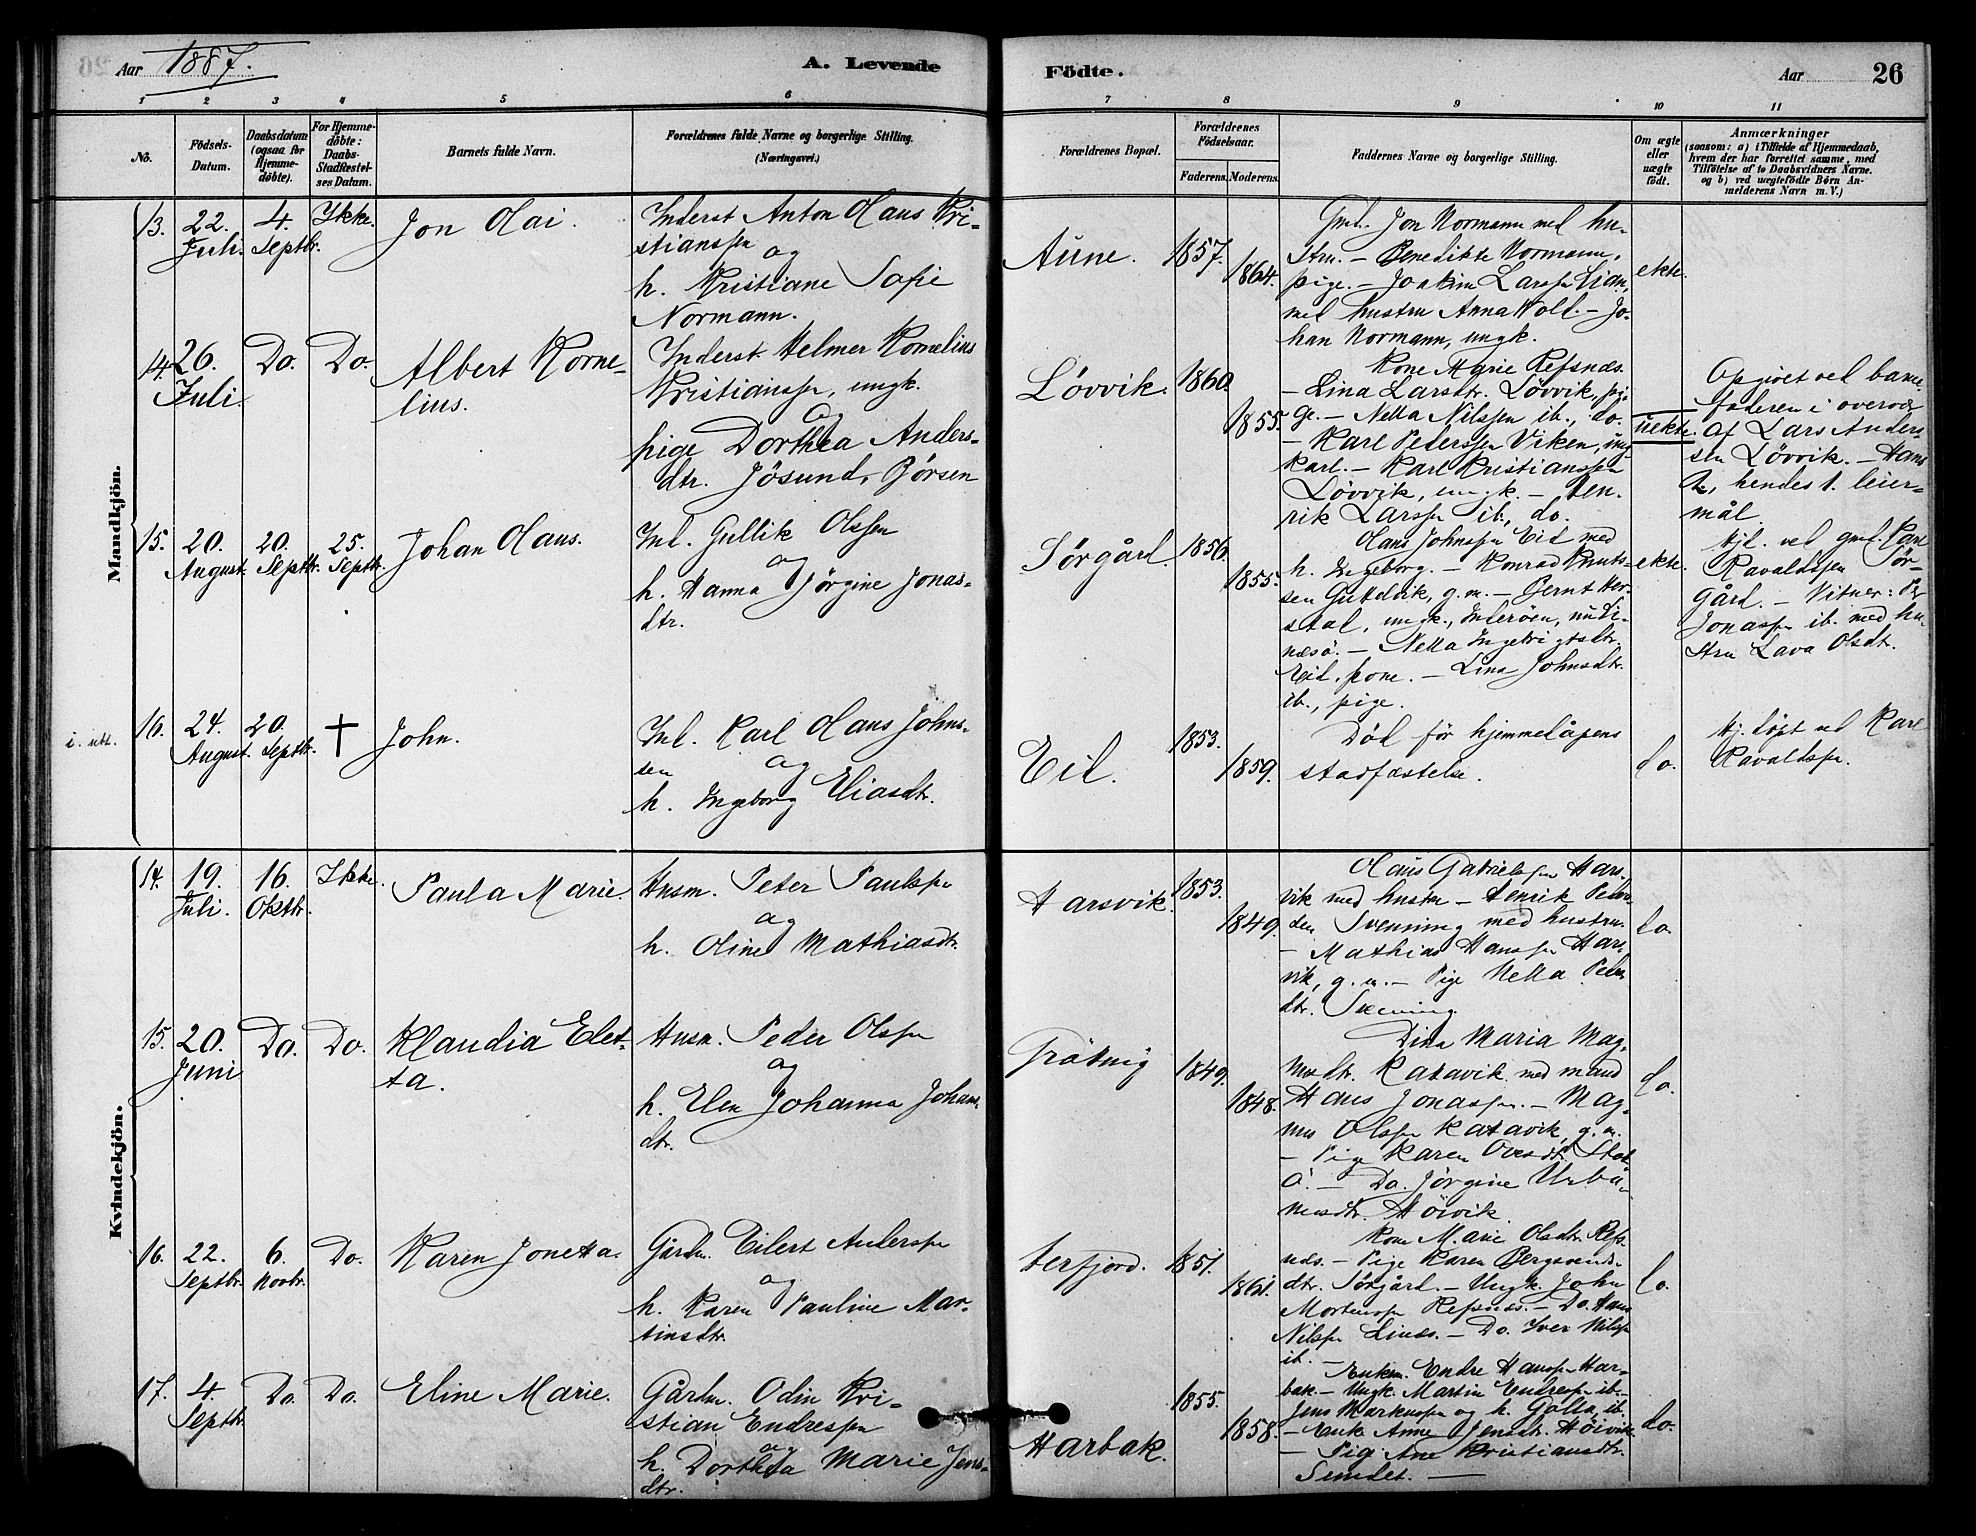 Aar 1887.
A. Levende
Födte.
Aar
26
1 2 3 4 5 6 7 8 9 10 11
No.
Födsels-
Datum.
Daabsdatum
(ogsaa for
Hjemme-
döbte).
For Hjemme-
döbte:
Daabs-
Stadfæstel-
ses Datum.
Barnets fulde Navn.
Forældrenes fulde Navne og borgerlige Stilling.
(Næringsvei.)
Forældrenes Bopæl.
Forældrenes
Födselsaar.
Faderens. Moderens.
Faddernes Navne og borgerlige Stilling.
Om ægte
eller
uægte
födt.
Anmærkninger
(saasom: a) i Tilfælde af Hjemmedaab,
hvem der har forrettet samme, med
Tilföielse af to Daabsvidners Navne.
og b) ved uægtefödte Börn An-
melderens Navn m. V.)
Mandkjön.
13. 22. Juli. 4. Septbr. Ikke.
Jon Olai.
Inderst Anton Olaus Kri-
stianssen
og
h. Kristiane Sofie
Normann.
Aune. 1857. 1864.
Gmd. Jon Normann med hu-
stru. - Benedikte Normann,
pige. - Joakim Larssen Lian,
med hustru Anna Wold. - Jo-
han Normann, ungk.
ekte.
14. 26. Juli. Do. Do.
Albert Korne-
lius.
Inderst Helmer Kornelius
Kristianssen, ungk.
og
pige Dorthea Anders-
dtr. Jösund, Börsen
Løvvik. 1860. 1855.
Kone Agrie Refsnæs.
- Lina Larsdtr. Løvvik, pi-
ge. - Netta Nilssen ib., do.
- Karl Pederssen Viken, ung-
karl. - Karl Kristianssen
Løvvik, ungk. - Hen-
rik Larssen ib., do.
uekte.
Opgivet ved barne-
faderen i overvær
af Lars Anders-
sen Løvvik. - Hans
2., hendes 1. leier-
mål
15. 20. August. 20. Septbr. 25. Septbr.
Johan Olaus.
Ind. Gullik Olssen
og
h. Hanna Jörgine Jonas-
dtr.
Sørgård. 1856. 1855.
Olaus Johnssen Eid med
h. Ingeborg. - Konrad Knuts-
sen Gutelvik, g.m. - Bernt Her-
stad, ungk., Inderøen, nu Li-
næsö. - Netta Ingebrigtsdtr.
Eid, kone. - Lina Johnsdtr.
ib., pige.
ekte.
Hjd. ved gmd. Karl
Ravaldssen Sør-
gård. - Vitner: Per
Jonassen ib. med hu-
stru Lava Olsdtr.
i. utt.
16. 24. August. 20. Septbr. †
John.
Ind. Karl Olaus Johns-
sen
og
h. Ingeborg Eliasdtr.
Eid. 1853. 1859.
Död för hjemmedåpens
stadfæstelse.
do.
Hj. døpt ved Karl
Ravaldssen.
Kvindekjön.
14. 19. Juli. 16. Oktbr. Ikke.
Paula Marie.
Husm. Peter Paulssen
og
h. Oline Mathiasdtr.
Harsvik. 1853. 1849.
Olaus Gabrielssen Hars-
vik med hustru - Henrik Peder-
sen Svenning med hustru
- Mathias Hanssen Hars-
vik, g.m. - Pige Netta Peder-
dtr. Svenning.
do.
15. 20. Juni Do. Do.
Klaudia Elet-
ta.
Husm. Peder Olssen
og
h. Elen Johanna Johans-
dtr.
Gråtnig 1849. 1848.
Dina Maria Mag-
nusdtr. Ratavik med mand
Hans Jonassen. - Mag-
nus Olssen Ratavik, g.m.
- Pige Karen Ovesdtr. Stok-
ö. - Do. Jørgine Urba-
nusdtr. Höivik.
do.
16. 22. Septbr. 6. Novbr. Do.
Karen Jonetta.
Gårdm. Eilert Anderssen
og
h. Karen Pauline Mar-
tinsdtr.
Terfjord. 1851. 1861.
Kone Marie Olsdtr. Refs-
næs. - Pige Karen Bergsvends-
dtr. Sörgård. - Ungk. John
Mortenssen Refsnæs. - Do. Hans
Nilssen Linæs. - Do. Iver Nilssen
ib. -
do.
17. 4. Septbr. Do. Do.
Eline Marie.
Gårdm. Odin Kri-
stian Endressen
og
h. Dorthea Marie Jens-
dtr.
Harbak. 1855. 1858.
Enkem. Endre Hanssen Har-
bak - Ungk. Martin Endressen ib. -
Jens Markussen og h. Golla ib.
- Enke Anne Jensdtr. Höivik
- Pige Ane Kristiansdtr.
Sundet. -
do.